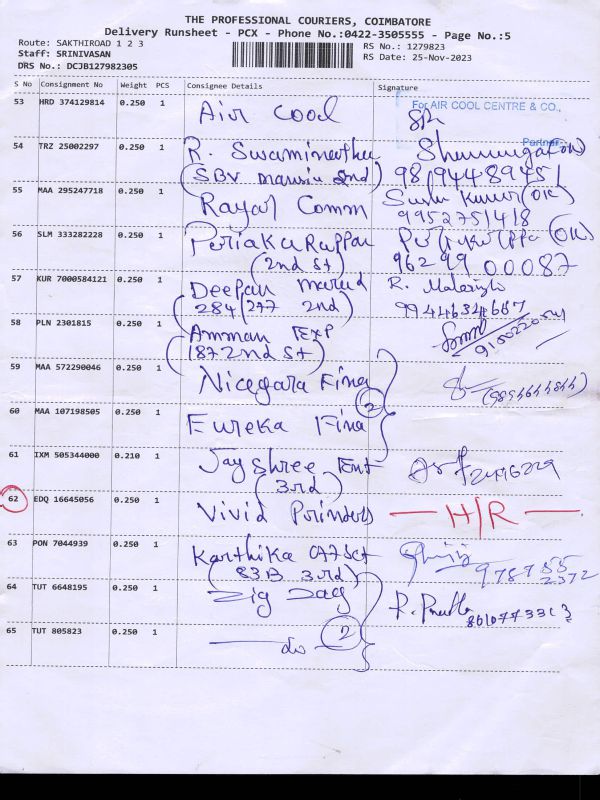 THE PROFESSIONAL COURIERS, COIMBATORE
Delivery Runsheet - PCX - Phone No.:0422-3505555 - Page No.:5
Route: SAKTHIROAD 1 2 3
RS No.: 1279823
Staff: SRINIVASAN
RS Date: 25-Nov-2023
DRS No.: DCJB127982305
S No Consignment No Weight PCS Consignee Details Signature
53 HRD 374129814 0.250 1 Air Cool
For AIR COOL CENTRE & CO.,
Partner
54 TRZ 25002297 0.250 1 R. Swaminatha
(SBV 2nd) 98194489451
55 MAA 295247718 0.250 1 Rayal Comm
9952751418
56 SLM 333282228 0.250 1 PeriakaRuppan (OK)
(2nd St) 96299 00087
57 KUR 7000584121 0.250 1 Deepan R.
(284/247 2nd) 9944634667
58 PLN 2301815 0.250 1 Amman Exp
(187 2nd St)
59 MAA 572290046 0.250 1 Nicegara Fina
2
60 MAA 107198505 0.250 1 Eureka Fina
61 IXM 505344000 0.210 1 Jayshree Ent
(3rd)
62 EDQ 16645056 0.250 1 Vivid Printers — H/R —
63 PON 7044939 0.250 1 Karthika
(83B 3rd) 978955
2372
64 TUT 6648195 0.250 1 Zig Zag
65 TUT 805823 0.250 1 — do — 2